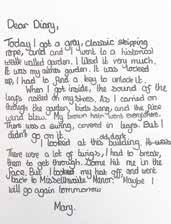 Dear Diary,
Today I got a grey, classic skipping
rope, and I went to a historical
walled garden. I liked it very much.
It was my garden. It was locked
up, I had to find a key to unlock it.
When I got inside, the sound of the
on my shoes. As I carried on
through the garden, birds sang, and the fierce
wind blew. My brown hair went everywhere.
There was a swing, covered in Ivy. But I
didn't
go on it.
I looked at this building. It was
There were a lot of twigs, I had to break
them to get through. Some hit me in the
face. But I my hat off, and went
back to Misselthwaite Manor. Maybe I
will go again tommorrow
Mary.